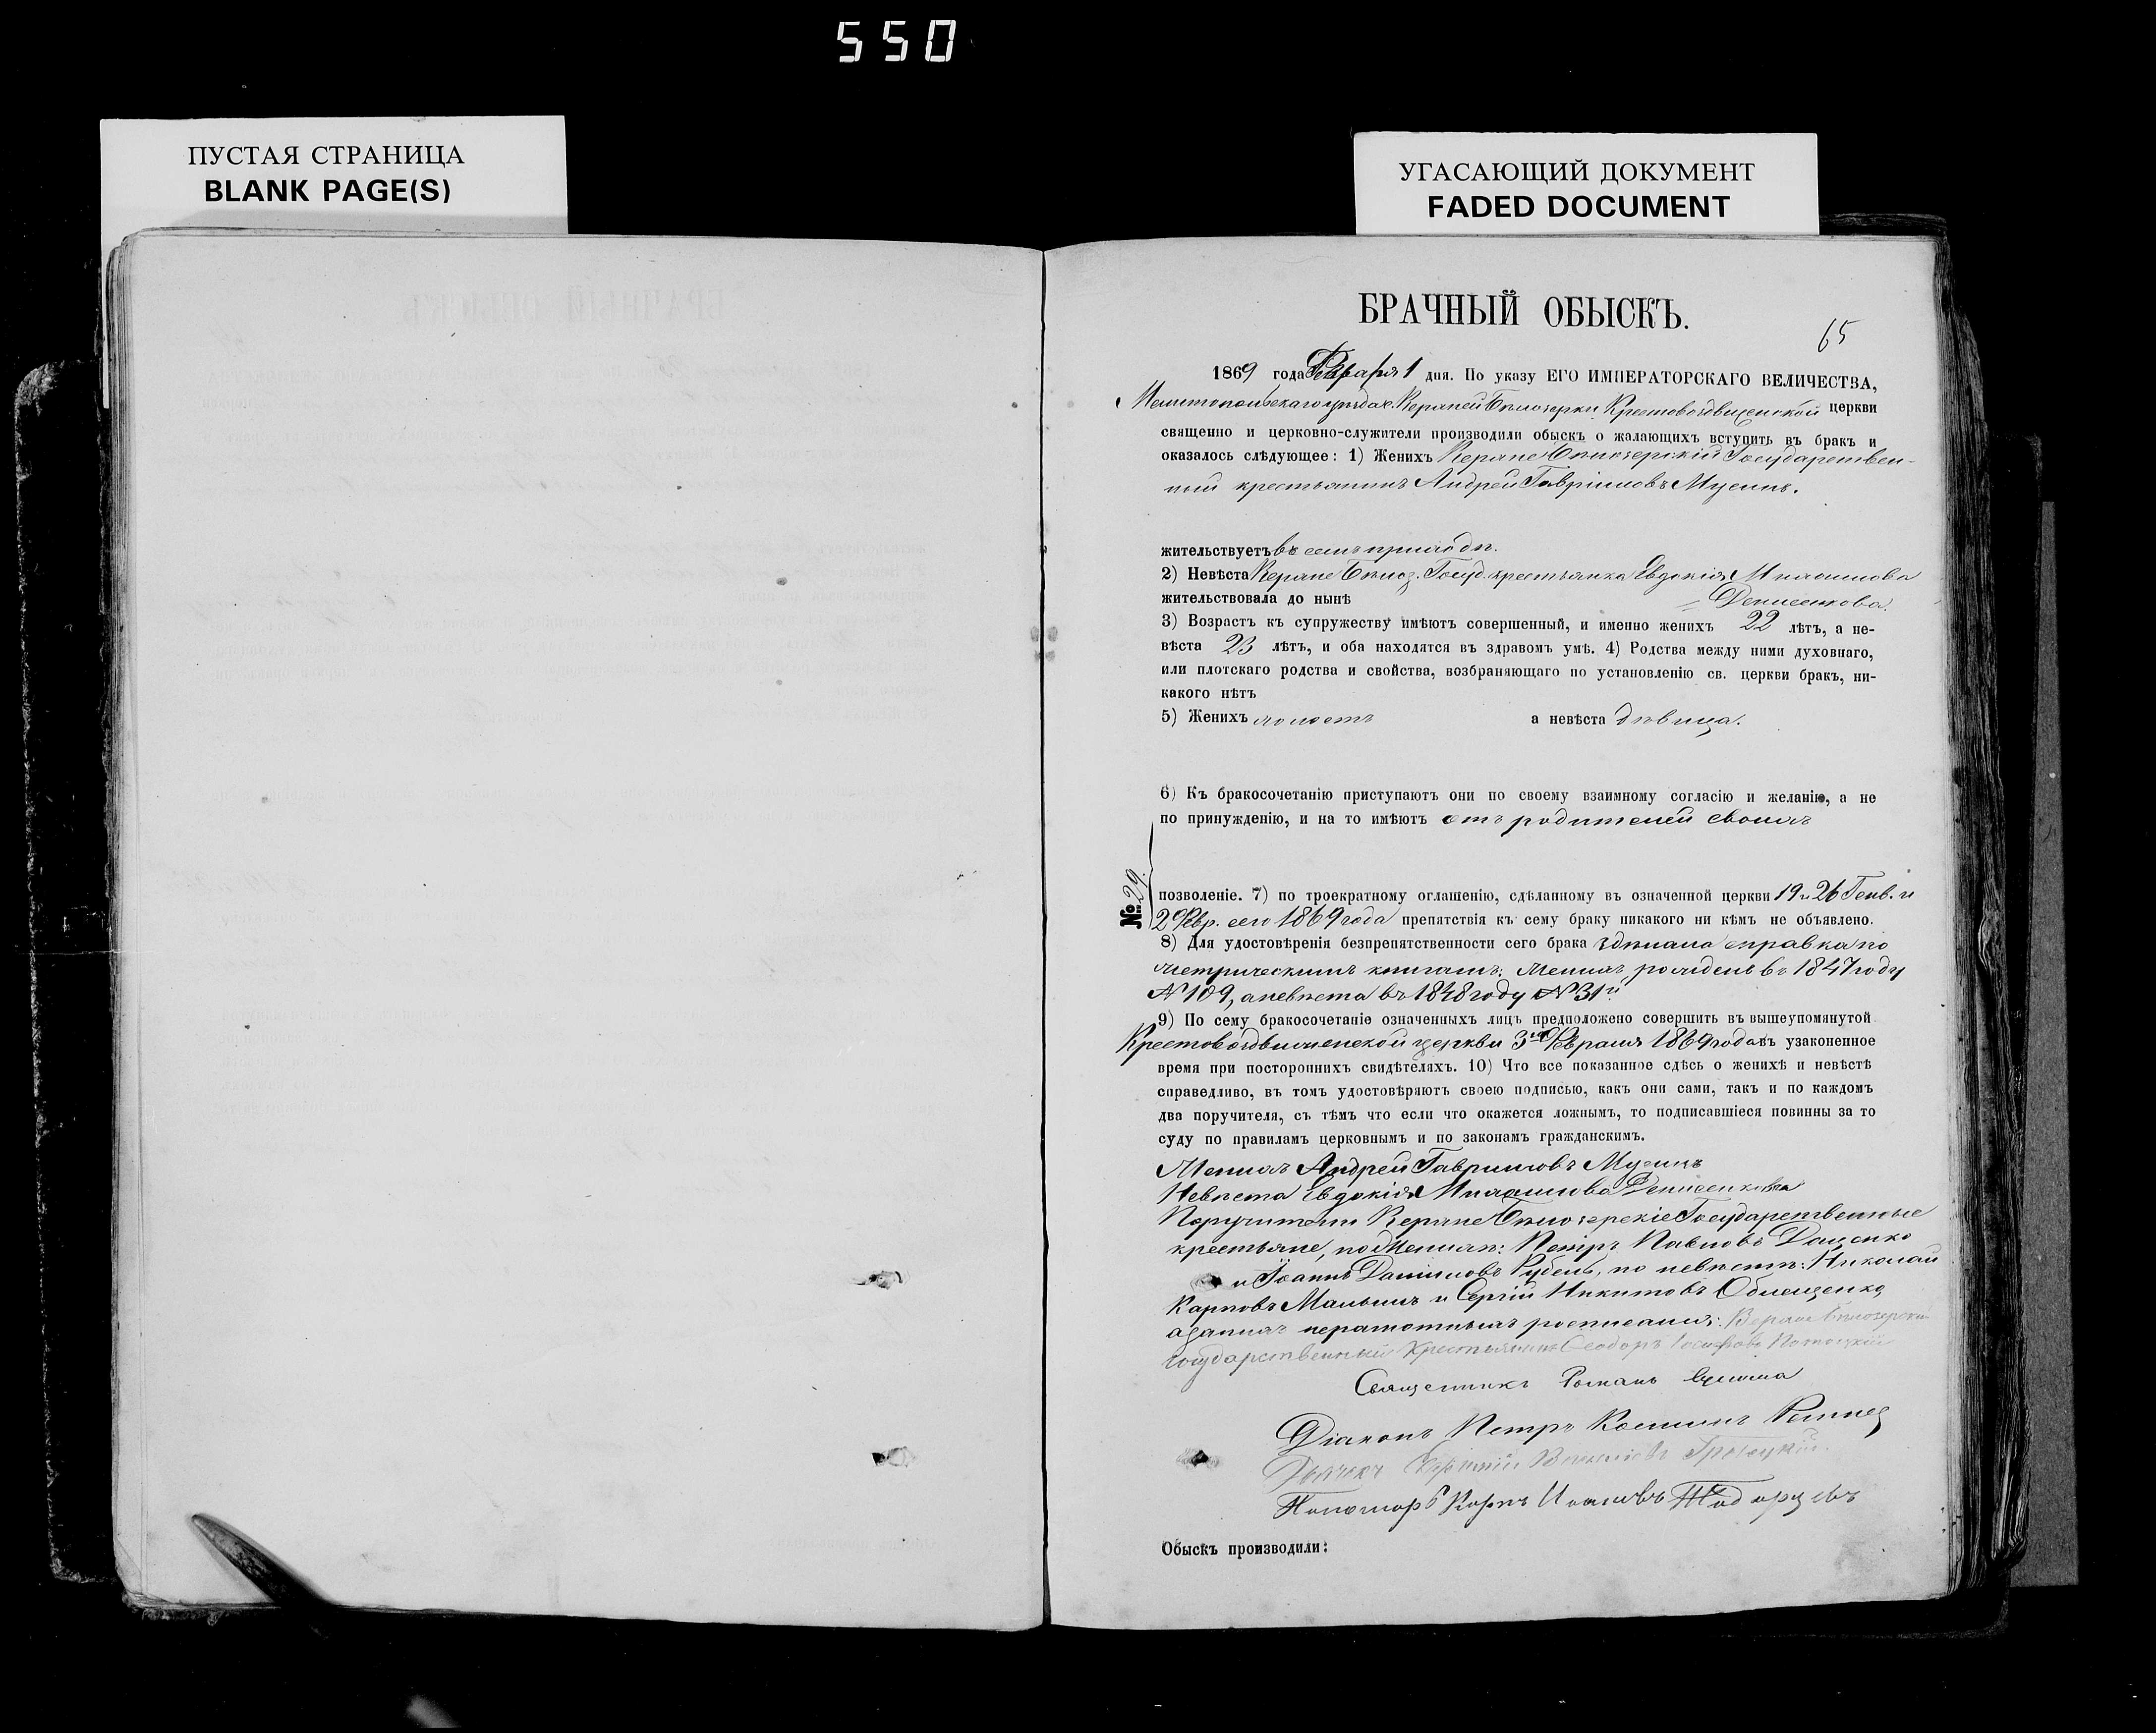 550
ПУСТАЯ СТРАНИЦА
BLANK PAGE(S)
УГАСАЮЩИЙ ДОКУМЕНТ
FADED DOCUMENT
БРАЧНЫЙ ОБЫСКЪ.
65
1869 года Февраля 1 дня. По указу ЕГО ИМПЕРАТОРСКАГО ВЕЛИЧЕСТВА,
Мелитопольскаго уѣзда с. Верхней Бѣлозерки Крестовоздвиженской церкви
священно и церковно-служители производили обыскъ о жалающихъ вступить въ бракъ и
оказалось слѣдующее: 1) Женихъ Верхне Бѣлозерскій Государствен-
ный крестьянинъ Андрей Гавріиловъ
жительствуетъ въ семъ приходѣ.
2) Невѣста Верхне Бѣлоз. Госуд. крестьянка Евдокія
жительствовала до нынѣ Денисенкова.
3) Возрастъ къ супружеству имѣютъ совершенный, и именно женихъ 22 лѣтъ, а не-
вѣста 23 лѣтъ, и оба находятся въ здравомъ умѣ. 4) Родства между ними духовнаго,
или плотскаго родства и свойства, возбраняющаго по установленію св. церкви бракъ, ни-
какого нѣтъ
5) Женихъ холостъ а невѣста дѣвица.
6) Къ бракосочетанію приступаютъ они по своему взаимному согласію и желанію, а не
по принужденію, и на то имѣютъ отъ родителей своихъ
№ 29.
позволеніе. 7) по троекратному оглашенію, сдѣланному въ означенной церкви 19 и 26 Генв. и
2 Февр. сего 1869 года препятствія къ сему браку никакого ни кѣмъ не объявлено.
8) Для удостовѣренія безпрепятственности сего брака здѣлана справка по
метрическимъ книгамъ: Женихъ рожденъ въ 1847 году
№ 109, а невѣста въ 1848 году № 31й
9) По сему бракосочетаніе означенныхъ лицъ предположено совершить въ вышеупомянутой
Крестовоздвиженской церкви 3го Февраля 1869 года въ узаконенное
время при постороннихъ свидѣтеляхъ. 10) Что все показанное сдѣсь о женихѣ и невѣстѣ
справедливо, въ томъ удостовѣряютъ своею подписью, какъ они сами, такъ и по каждомъ
два поручителя, съ тѣмъ что если что окажется ложнымъ, то подписавшіеся повинны за то
суду по правиламъ церковнымъ и по законамъ гражданскимъ.
Женихъ Андрей Гавриловъ
Невѣста Евдокія Денисенкова
Поручители Верхне Бѣлозерскіе Государственные
крестьяне, по Женихѣ: Петръ Павловъ Даценко
и Іоаннъ Даниловъ Рубель, по невѣстѣ: Николай
Карповъ и Сергій Никитовъ
а за нихъ неграмотныхъ росписался: Верхне Бѣлозерскій
Государственный Крестьянинъ Ѳеодоръ
Священникъ Романъ
Діаконъ Петръ Косминъ
Дьячекъ
Пономарь Карпъ
Обыскъ производили: